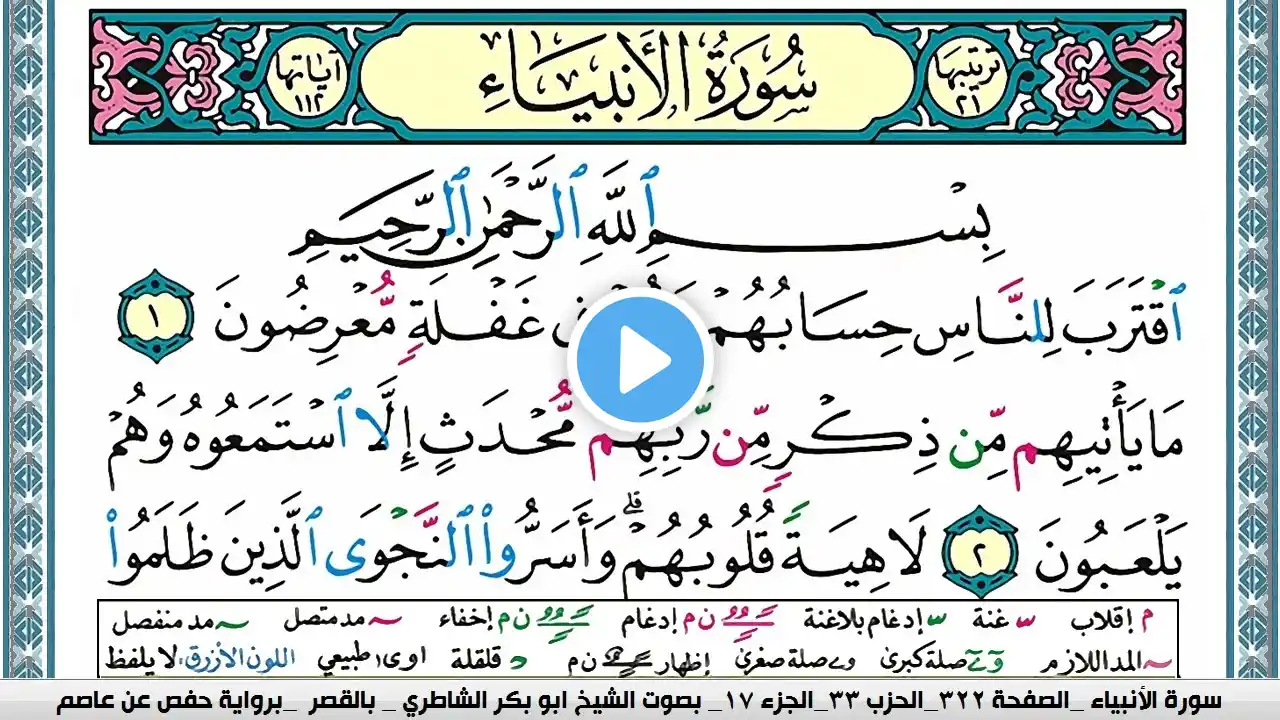 ترتيبها ٢١
سُورَةُ الأَنبِيَاءِ
آياتها ١١٢
بِسْمِ ٱللَّهِ ٱلرَّحْمَٰنِ ٱلرَّحِيمِ
ٱقْتَرَبَ لِلنَّاسِ حِسَابُهُمْ غَفْلَةٍ مُّعْرِضُونَ ١
مَا يَأْتِيهِم مِّن ذِكْرٍ مِّن رَّبِّهِم مُّحْدَثٍ إِلَّا ٱسْتَمَعُوهُ وَهُمْ
يَلْعَبُونَ ٢ لَاهِيَةً قُلُوبُهُمْ ۗ وَأَسَرُّوا۟ ٱلنَّجْوَى ٱلَّذِينَ ظَلَمُوا۟
م إقلاب غنة إدغام بلاغنة ن م إدغام ن م إخفاء مد متصل مد منفصل
المد اللازم صلة كبرى صلة صغرى إظهار ن م قلقلة اوى طبيعي اللون الأزرق: لا يلفظ
سورة الأنبياء _الصفحة ٣٢٢_الحزب ٣٣_الجزء ١٧_ بصوت الشيخ ابو بكر الشاطري _ بالقصر _برواية حفص عن عاصم